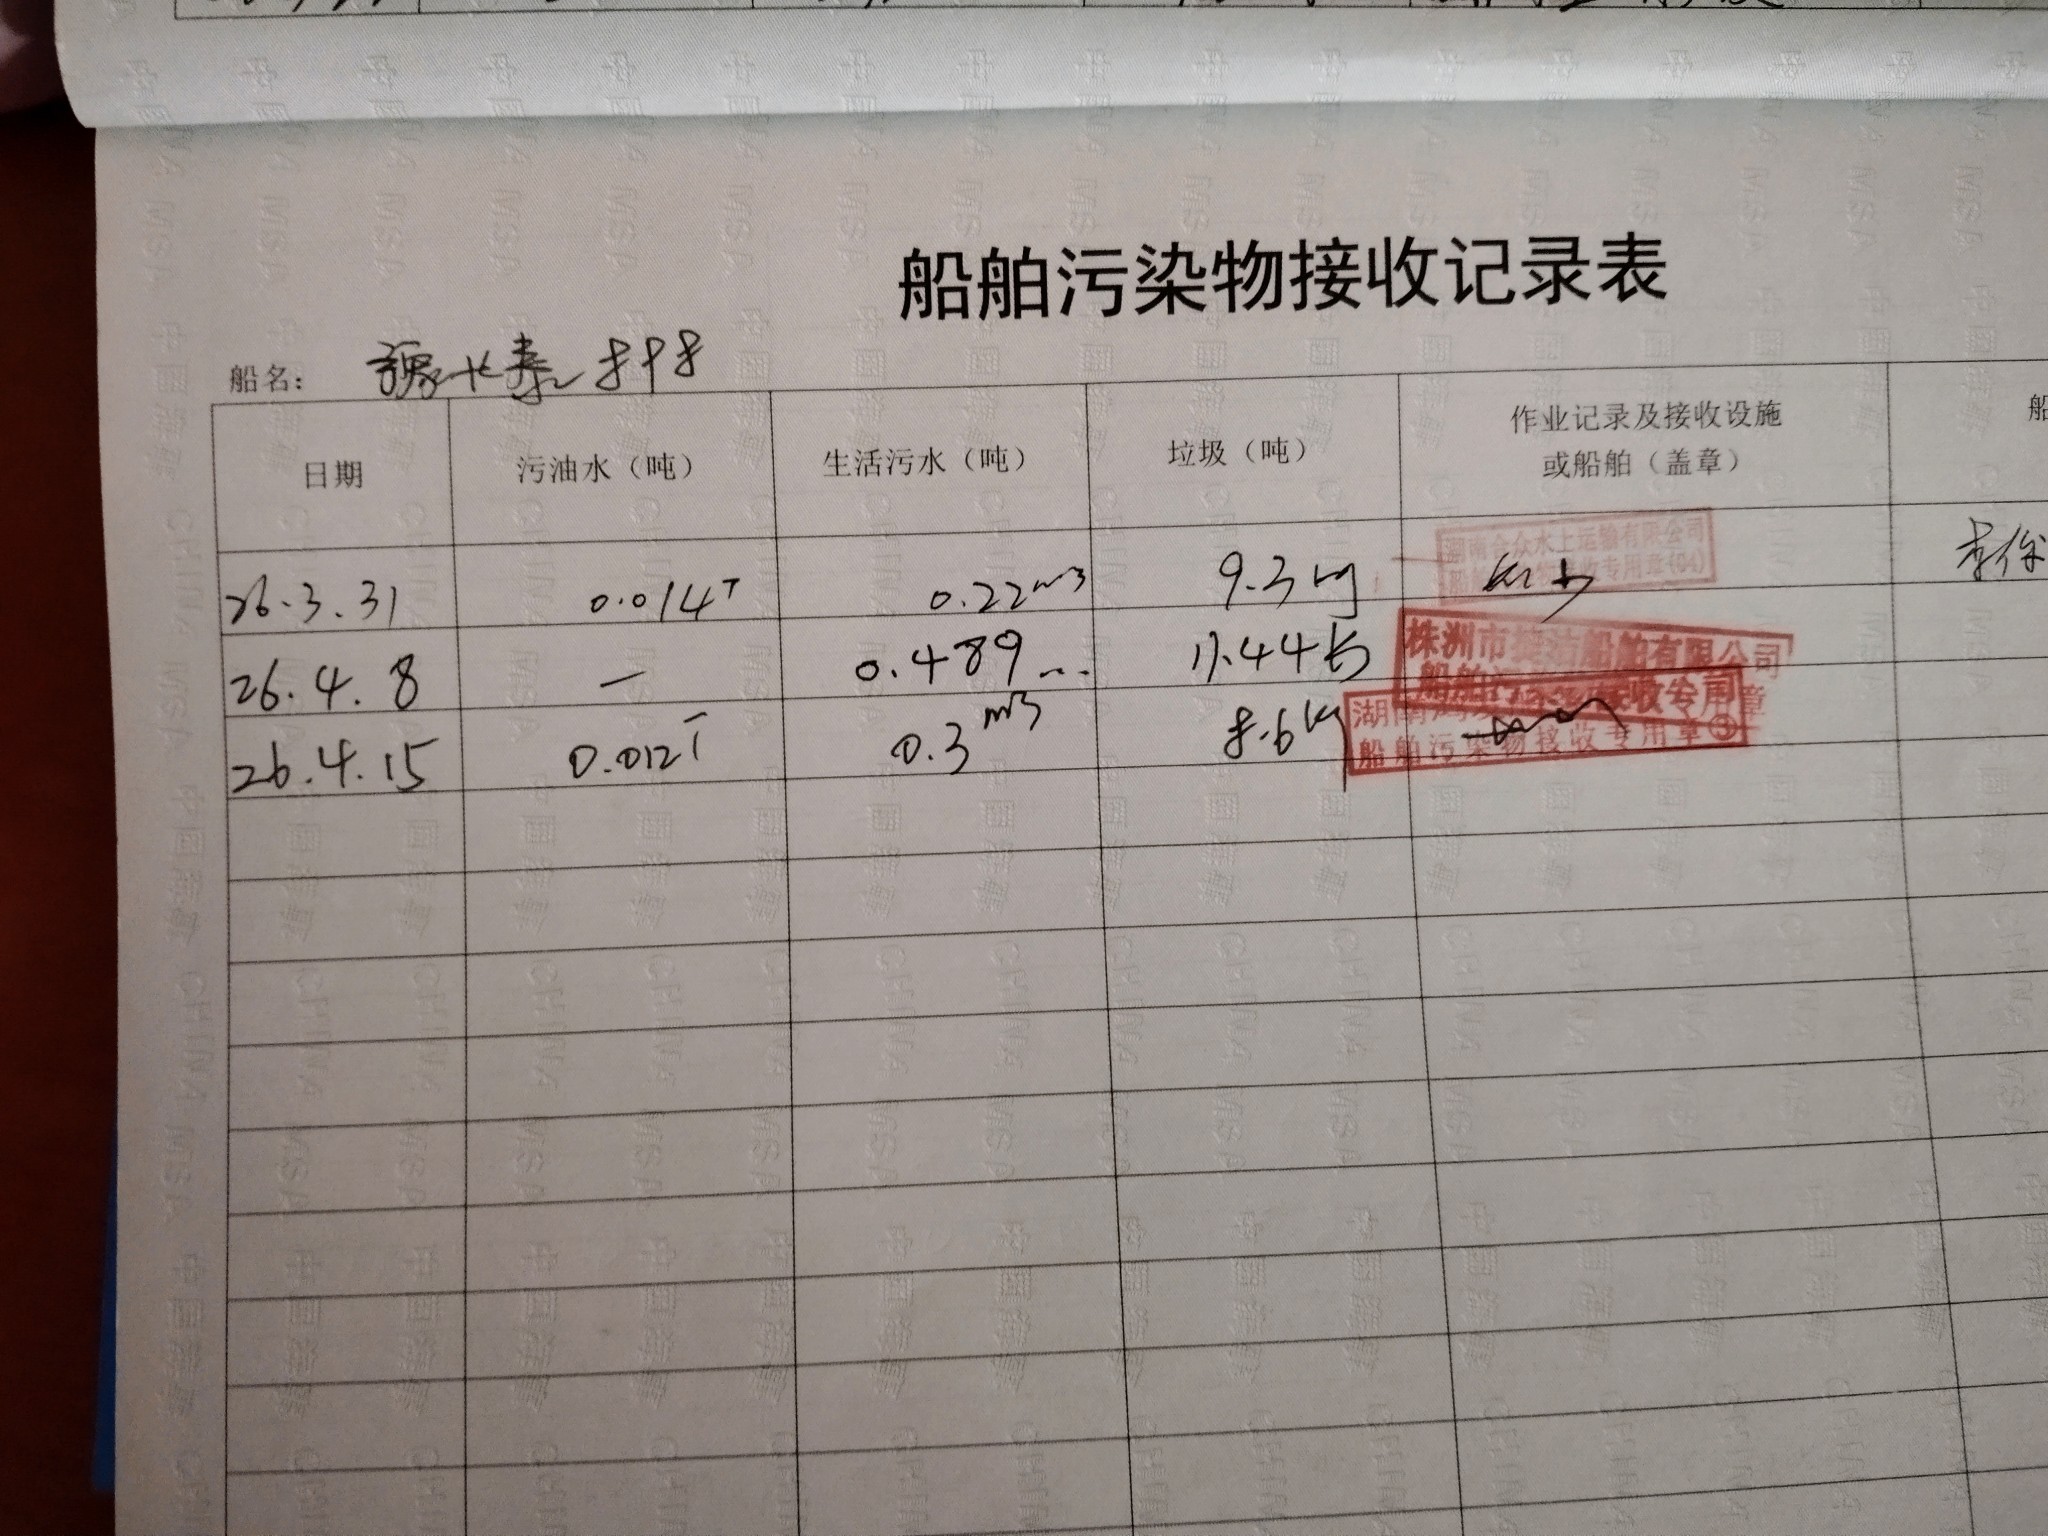 船舶污染物接收记录表
船名：
日期 污油水（吨） 生活污水（吨） 垃圾（吨） 作业记录及接收设施 船
或船舶（盖章）
湖南合众水上运输有限公司
专用章(04)
26.3.31 0.014T 0.22m3 9.3kg
株洲市 船舶有限公司
船舶 接收专用章
26.4.8 — 0.489 11.44
湖南
船舶污染物接收专用章③
26.4.15 0.012T 0.3m3 8.6kg
中国海事 CHINA MSA